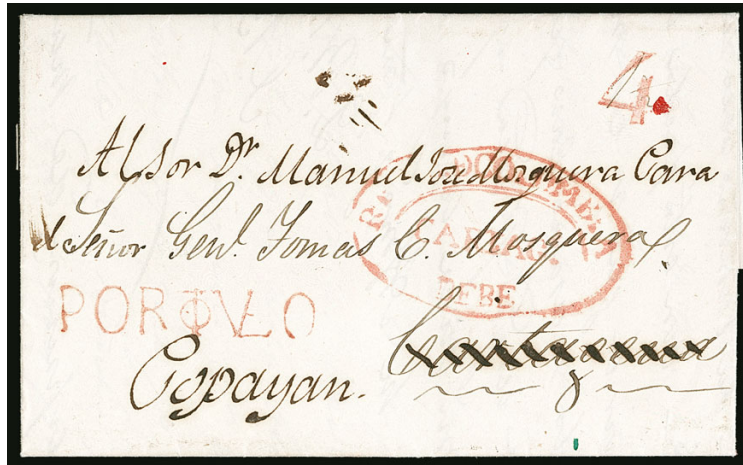 4
Al Sor Dr. Manuel Jose Mosquera Para
el Señor Genl. Tomas C. Mosquera
CARTAG.
DEBE
PORTVLO
Popayan.